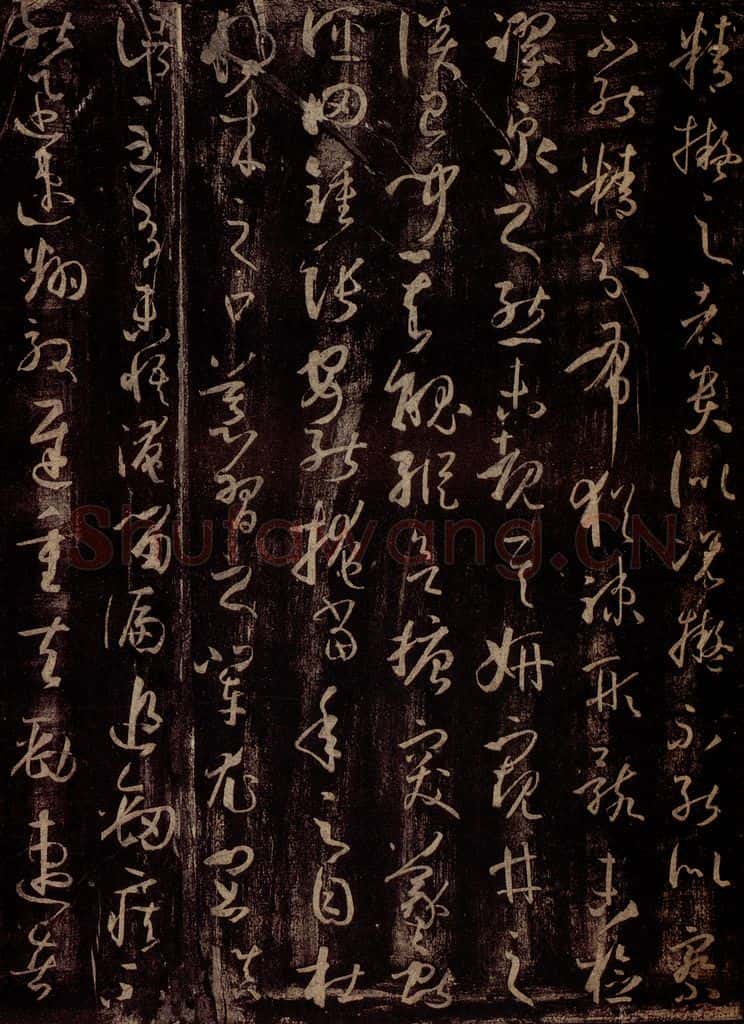 精擬之者貴似況擬不能似察
不能精分布猶疎形骸未檢
躍泉之態未覩其妍窺井之
談已聞其醜縱欲搪突羲獻
誣罔鍾張安能掩當年之目杜
將來之口慕習之輩尤宜慎
諸至有未悟淹留偏追勁疾不
能迅速翻效遲重夫勁速者
Shufawang.CN